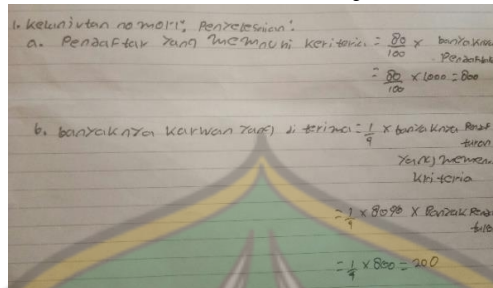 1. Kelanjutan nomor 1. Penyelesaian:
a. Pendaftar yang memenuhi keriteria = 80/100 x banyaknya
Pendaftar
= 80/100 x 1000 = 800
b. banyaknya karwan yang di terima = 1/4 x banyaknya Pendaf
taran
yang memenu
kriteria
= 1/4 x 80% x Banyak Penda
= 1/4 x 800 = 200